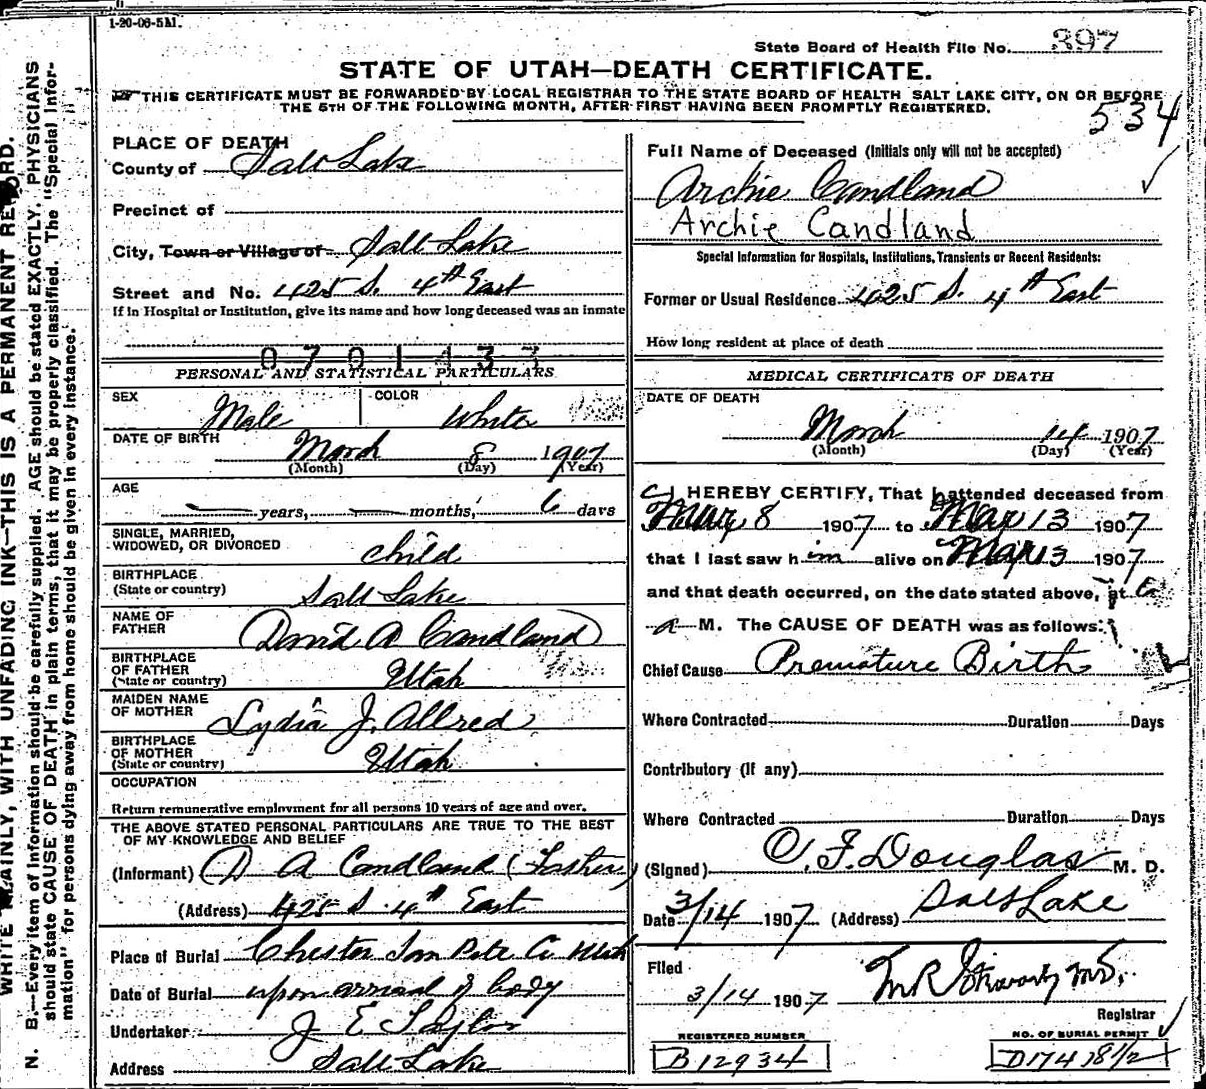 1-20-06-5M.
State Board of Health File No. 397
STATE OF UTAH—DEATH CERTIFICATE.
THIS CERTIFICATE MUST BE FORWARDED BY LOCAL REGISTRAR TO THE STATE BOARD OF HEALTH SALT LAKE CITY, ON OR BEFORE
THE 5TH OF THE FOLLOWING MONTH, AFTER FIRST HAVING BEEN PROMPTLY REGISTERED.
534
WRITE PLAINLY, WITH UNFADING INK—THIS IS A PERMANENT RECORD.
N. B.—Every item of information should be carefully supplied. AGE should be stated EXACTLY, PHYSICIANS
should state CAUSE OF DEATH in plain terms, that it may be properly classified. The "Special Infor-
mation" for persons dying away from home should be given in every instance.
PLACE OF DEATH
County of Salt Lake
Precinct of
City, Town or Village of Salt Lake
Street and No. 425 S. 4th East
If in Hospital or Institution, give its name and how long deceased was an inmate
0701433
PERSONAL AND STATISTICAL PARTICULARS
SEX Male COLOR White
DATE OF BIRTH March 8 1907
(Month) (Day) (Year)
AGE
years, months, 6 days
SINGLE, MARRIED,
WIDOWED, OR DIVORCED child
BIRTHPLACE
(State or country) Salt Lake
NAME OF
FATHER David A Candland
BIRTHPLACE
OF FATHER
(State or country) Utah
MAIDEN NAME
OF MOTHER Lydia J. Allred
BIRTHPLACE
OF MOTHER
(State or country) Utah
OCCUPATION
Return remunerative employment for all persons 10 years of age and over.
THE ABOVE STATED PERSONAL PARTICULARS ARE TRUE TO THE BEST
OF MY KNOWLEDGE AND BELIEF
(Informant) D A Candland (Father)
(Address) 425 S. 4th East
Place of Burial Chester San Pete Co Utah
Date of Burial upon arrival of body
Undertaker J E Taylor
Address Salt Lake
Full Name of Deceased (Initials only will not be accepted)
Archie Candland
Archie Candland
Special Information for Hospitals, Institutions, Transients or Recent Residents:
Former or Usual Residence 425 S. 4th East
How long resident at place of death
MEDICAL CERTIFICATE OF DEATH
DATE OF DEATH
March 14 1907
(Month) (Day) (Year)
I HEREBY CERTIFY, That I attended deceased from
Mar 8 1907 to Mar 13 1907
that I last saw him alive on Mar 13 1907
and that death occurred, on the date stated above, at 6
a M. The CAUSE OF DEATH was as follows:
Chief Cause Premature Birth
Where Contracted Duration Days
Contributory (if any)
Where Contracted Duration Days
(Signed) O. F. Douglas M. D.
Date 3/14 1907 (Address) Salt Lake
Filed
3/14 1907 M R Stewart M.D.
Registrar
REGISTERED NUMBER
B12934
NO. OF BURIAL PERMIT
D1741812